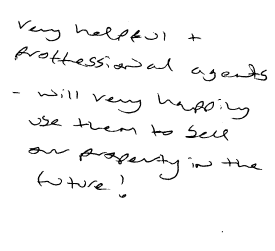 very helpful +
proffessional agents
- will very happily
use them to sell
our property in the
future!